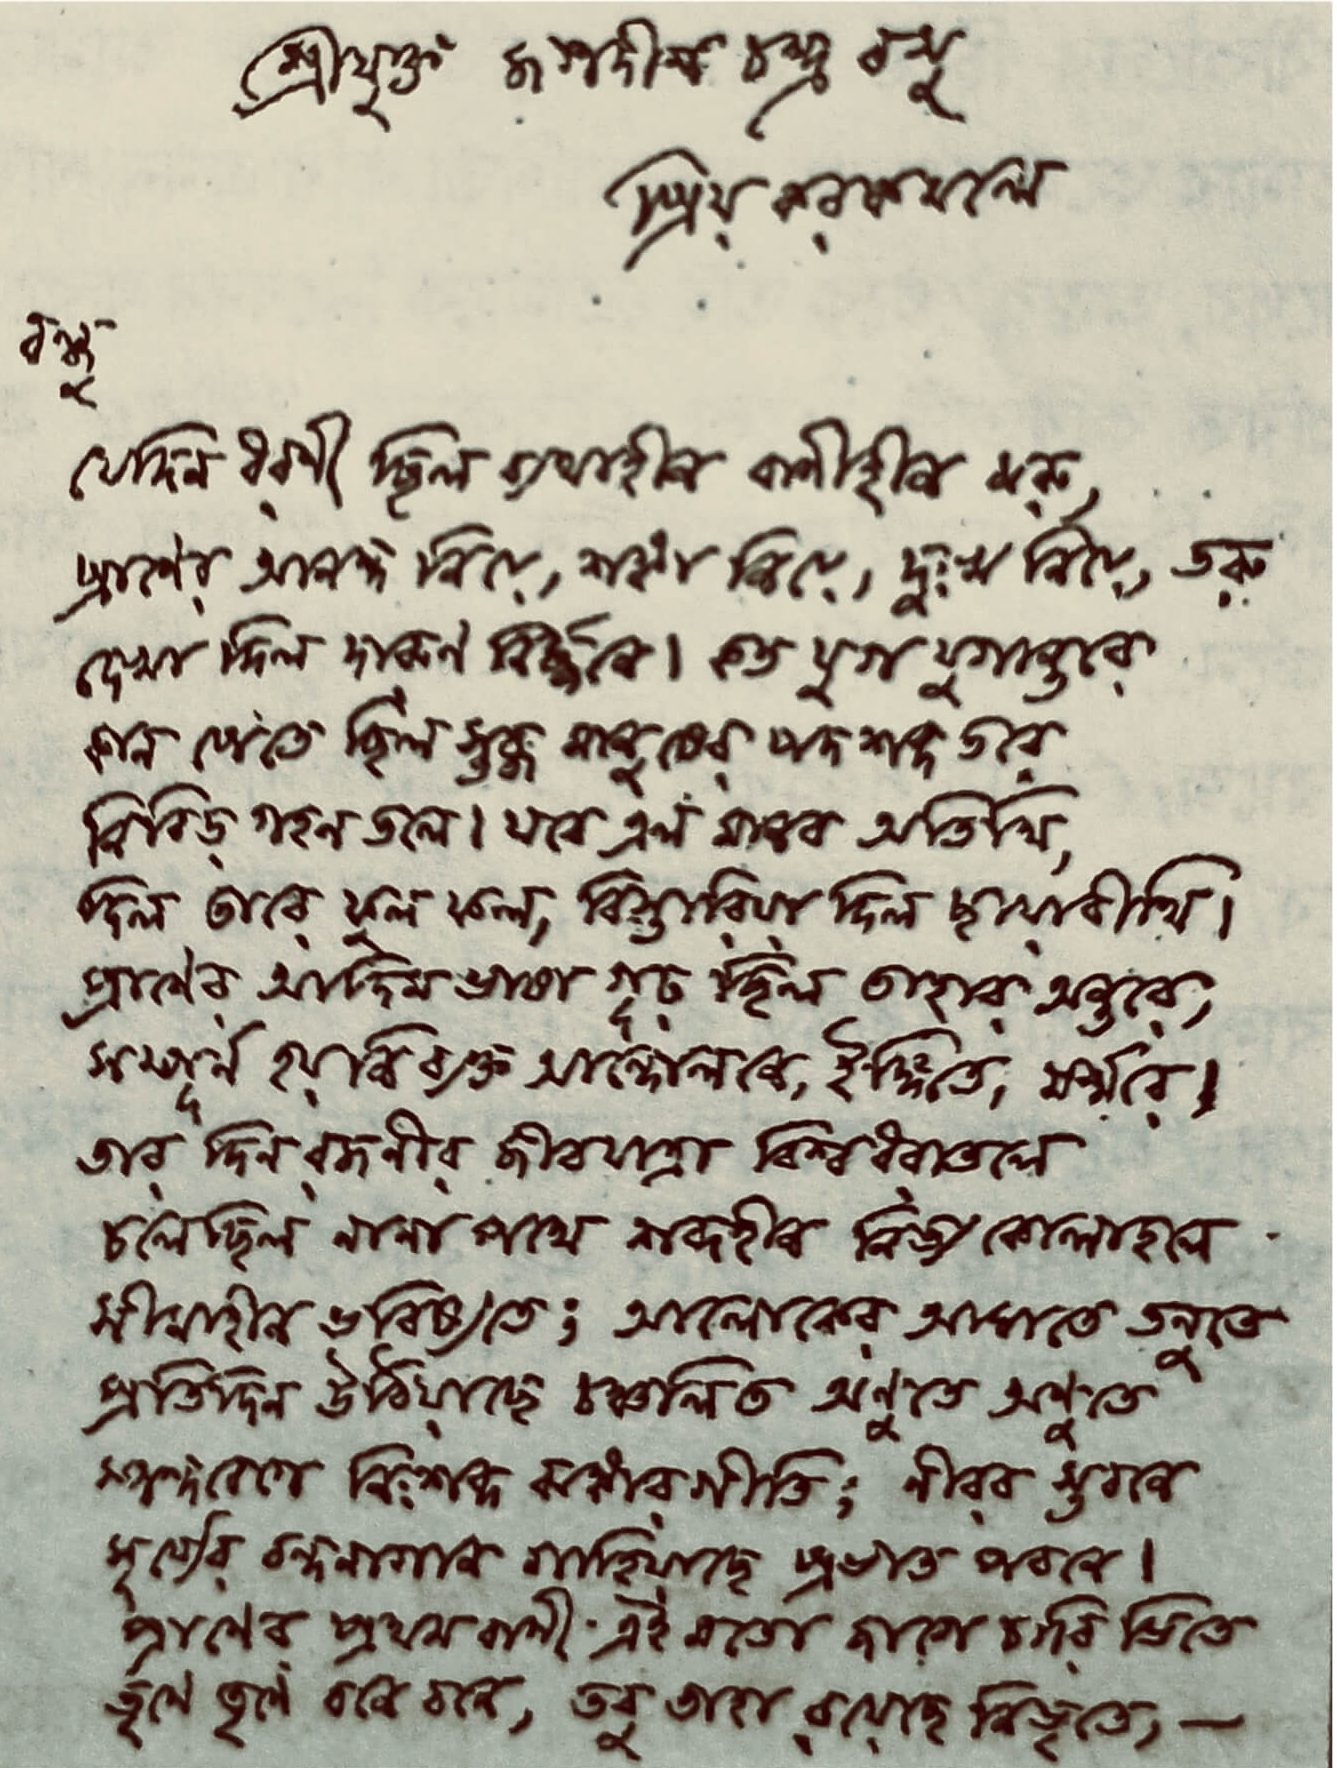 শ্রীযুক্ত জগদীশ চন্দ্র বসু
প্রিয় করকমলে
বন্ধু
যেদিন ধরণী ছিল ব্যথাহীন বাণীহীন মরু,
প্রাণের আনন্দ নিয়ে, শঙ্কা নিয়ে, দুঃখ নিয়ে, তরু
দেখা দিল দারুণ নির্জ্জনে। কত যুগ যুগান্তরে
কান পেতে ছিল স্তব্ধ মানুষের পদশব্দ তরে
নিবিড় গহন তলে। যবে এল মানব অতিথি,
দিল তারে ফুল ফল, বিস্তারিয়া দিল ছায়াবীথি।
প্রাণের আদিম ভাষা গূঢ় ছিল তাহার অন্তরে,
সম্পূর্ণ হয়নি ব্যক্ত আন্দোলনে, ইঙ্গিতে, মর্ম্মরে।
তার দিন রজনীর জীবযাত্রা বিশ্ব ধরাতলে
চলেছিল নানা পথে শব্দহীন নিত্য কোলাহলে
সীমাহীন ভবিষ্যতে; আলোকের আঘাতে তনুতে
প্রতিদিন উঠিয়াছে চঞ্চলিত অণুতে অণুতে
স্পন্দবেগে নিঃশব্দ ঝঙ্কার গীতি; নীরব স্তবনে
সূর্য্যের বন্দনাগান গাহিয়াছে প্রভাত পবনে।
প্রাণের প্রথম বাণী এই মতো জাগে চারি ভিতে
তৃণে তৃণে বনে বনে, তবু তাহা রয়েছে নিভৃতে,—